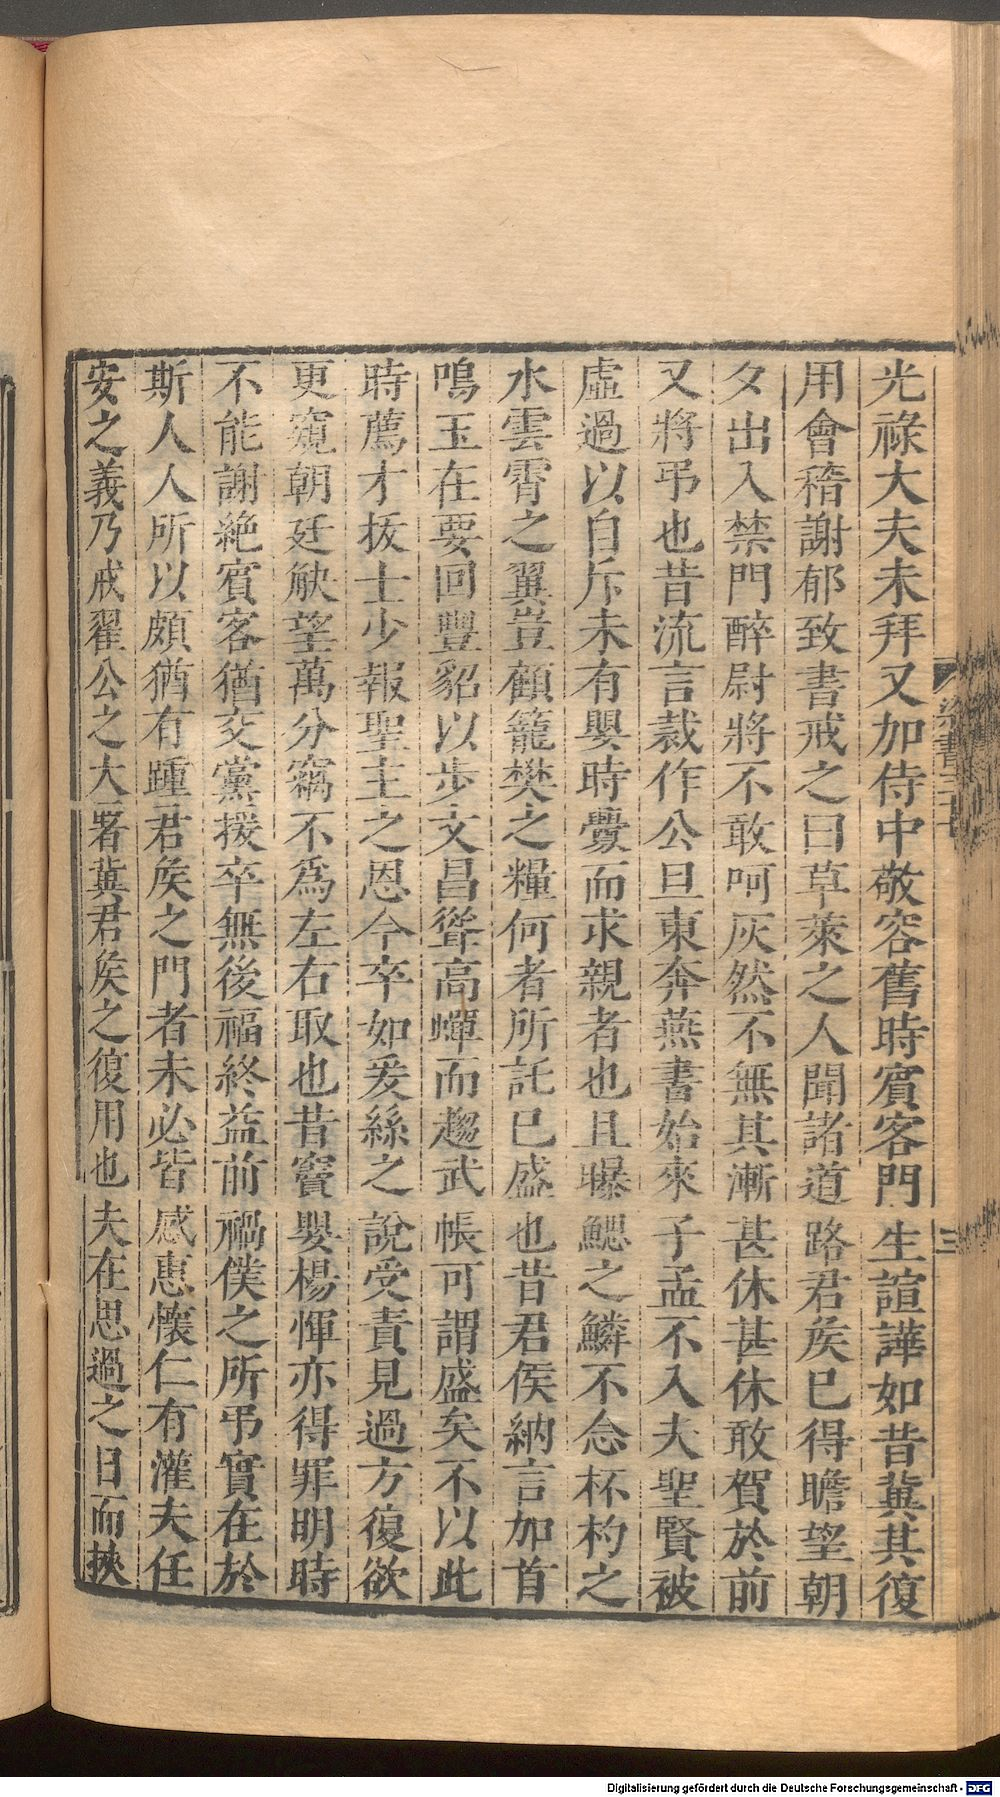 光祿大夫未拜又加侍中敬容舊時賓客門生諠譁如昔冀其復
用會稽謝郁致書戒之曰草萊之人聞諸道路君矦已得瞻望朝
夕出入禁門醉尉將不敢呵灰然不無其漸甚休甚休敢賀於前
又將弔也昔流言裁作公旦東奔燕書始來子孟不入夫聖賢被
虛過以自斥未有嬰時釁而求親者也且曝鰓之鱗不念杯杓之
水雲霄之翼豈顧籠樊之糧何者所託已盛也昔君侯納言加首
鳴玉在要回豐貂以步文昌聳高蟬而趨武帳可謂盛矣不以此
時薦才拔士少報聖主之恩今卒如爰絲之說受責見過方復欲
更窺朝廷觖望萬分竊不爲左右取也昔竇嬰楊惲亦得罪明時
不能謝絕賓客猶交黨援卒無後福終益前禍僕之所弔實在於
斯人人所以頗猶有踵君矦之門者未必皆感惠懷仁有灌夫任
安之義乃戒翟公之大署冀君矦之復用也夫在思過之日而挾
三
Digitalisierung gefördert durch die Deutsche Forschungsgemeinschaft - DFG